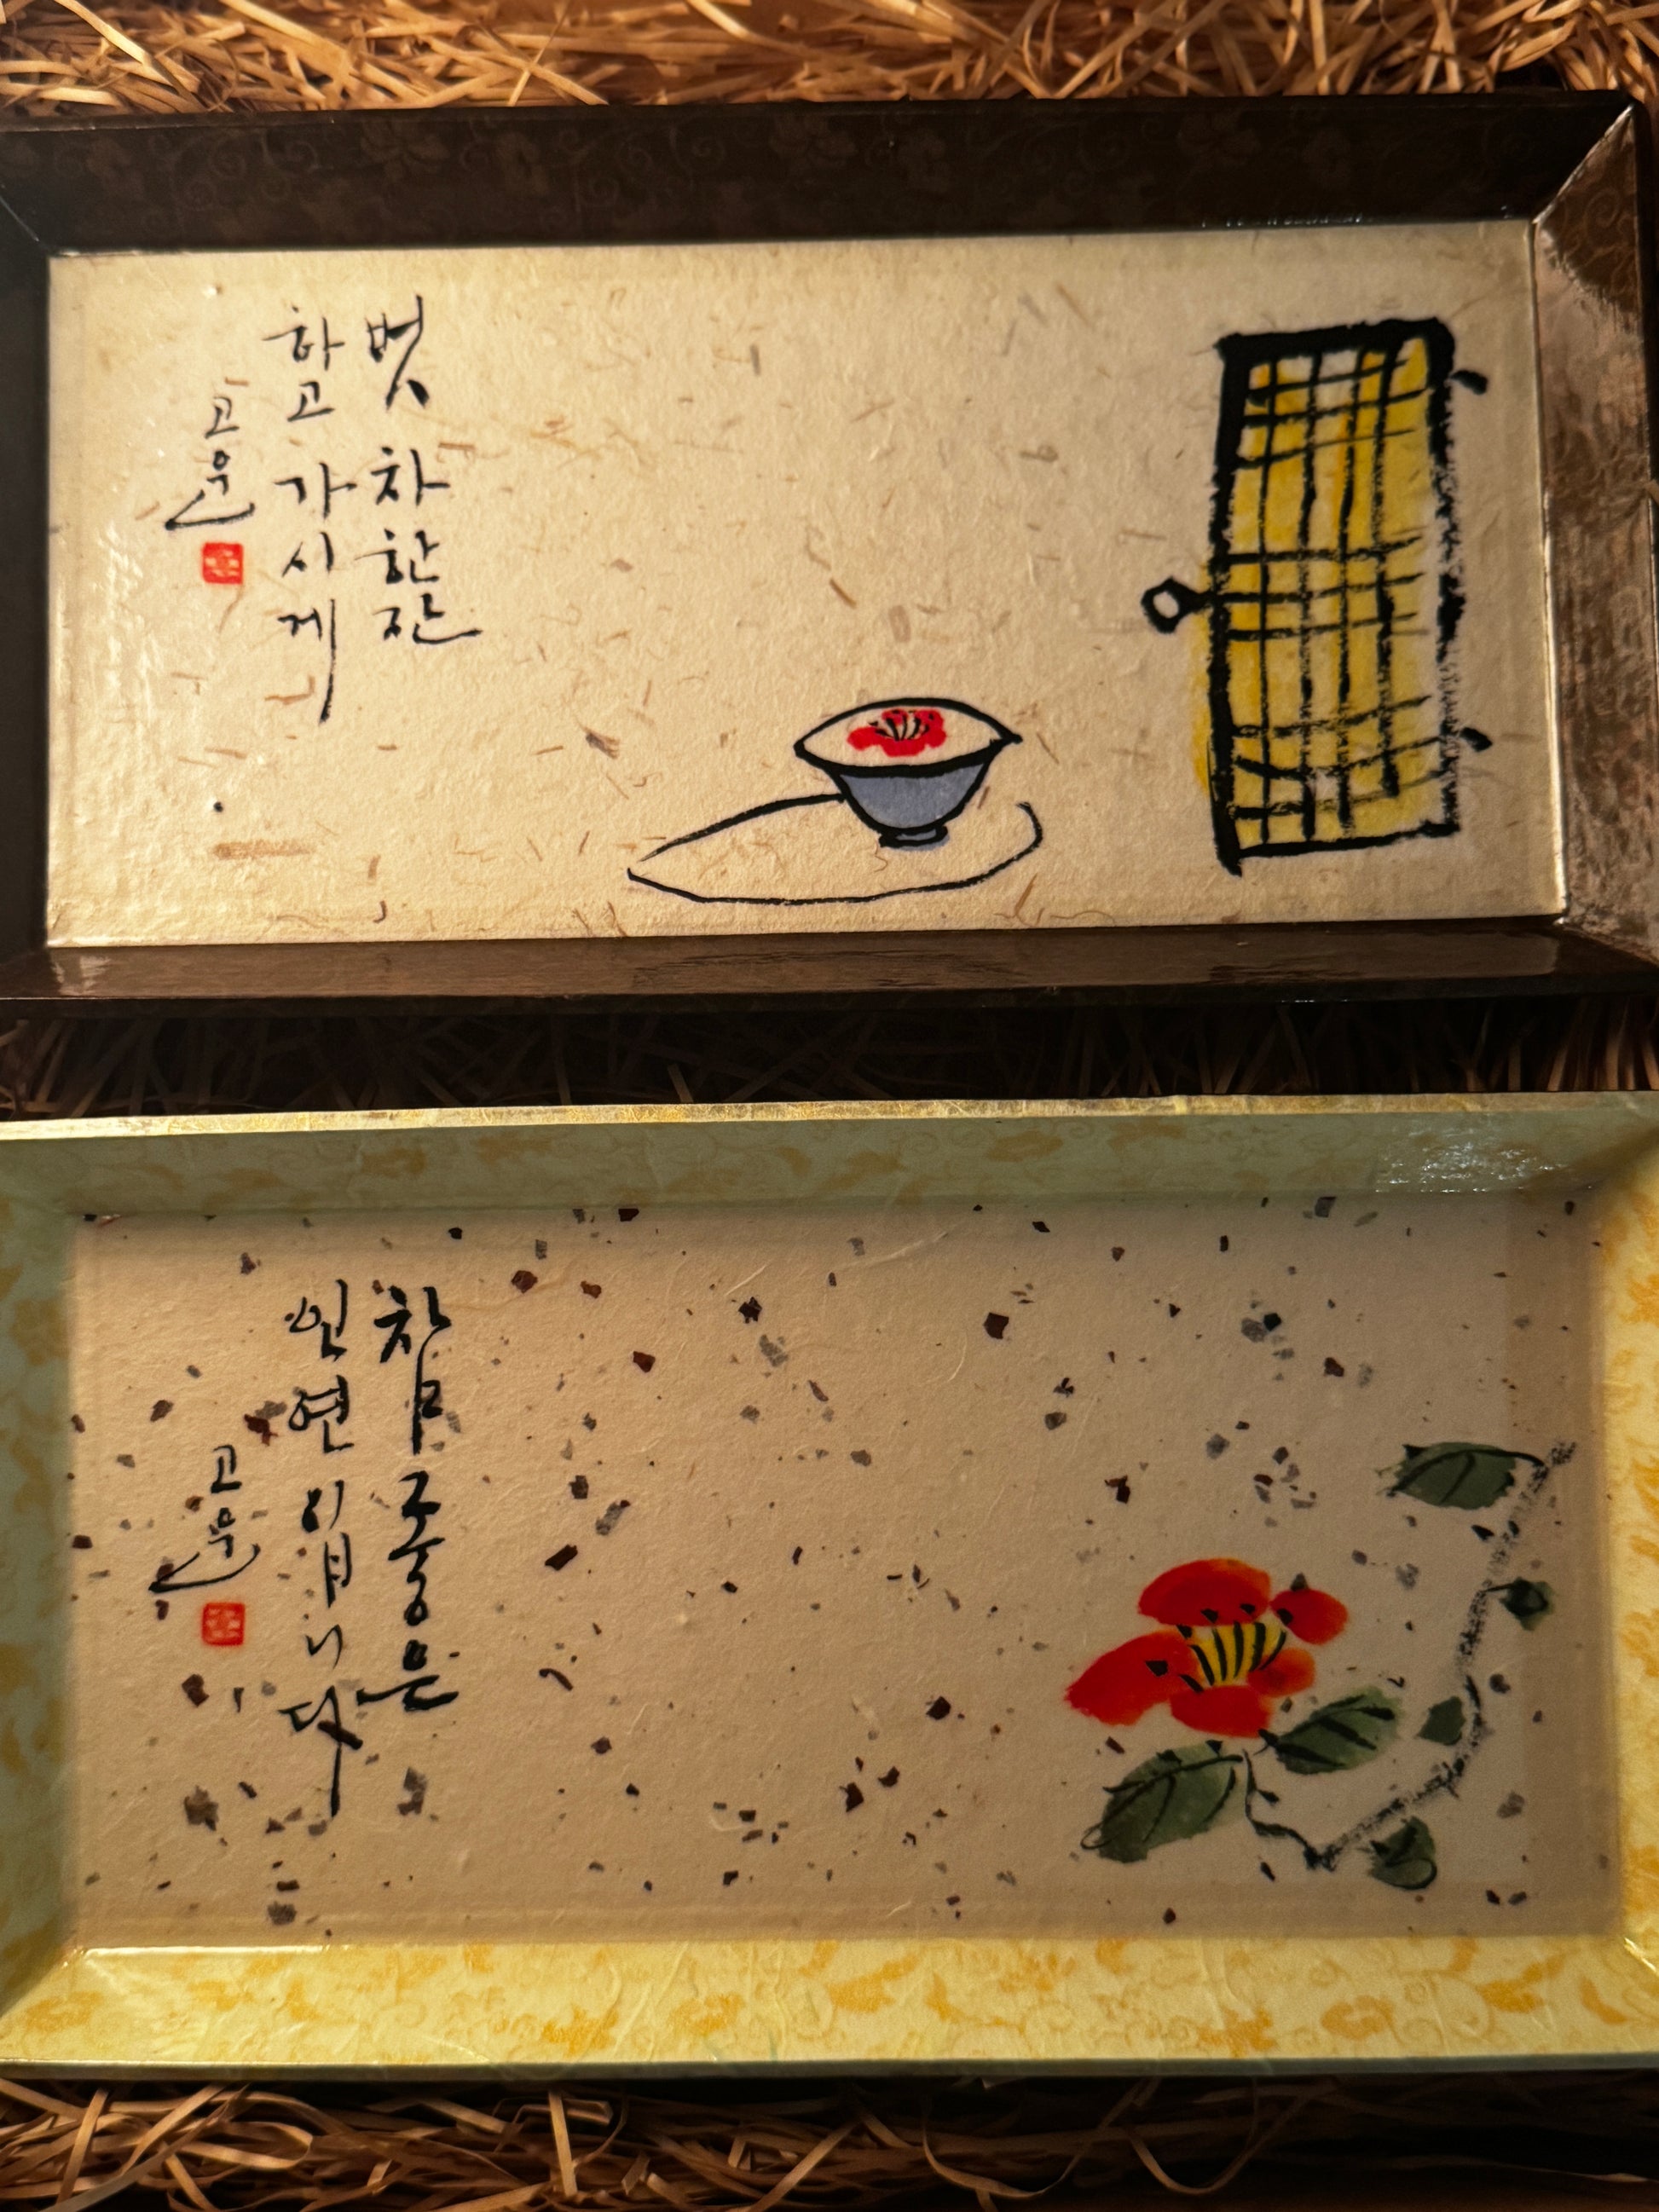 벗 차 한잔
하고 가시게
고운
참 좋은
인연입니다
고운